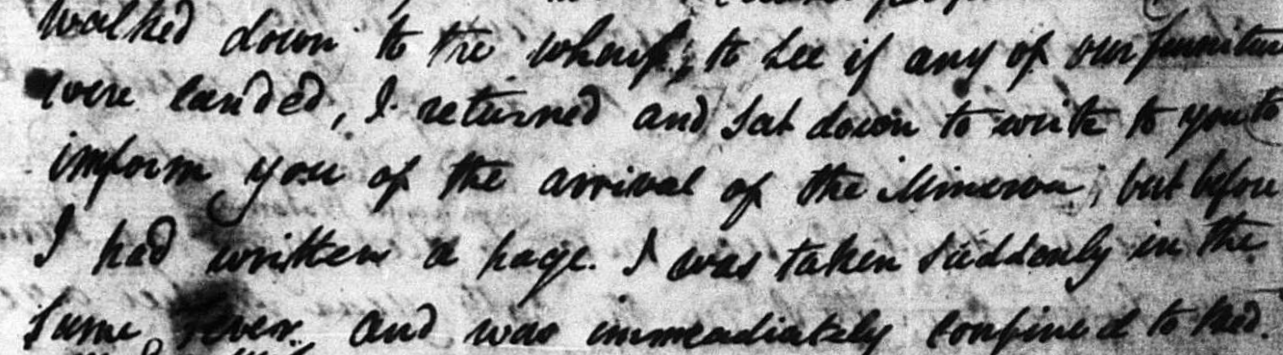 walked down to the wharf, to see if any of our furniture
were landed, I returned and sat down to write to you to
imform you of the arrival of the Minerva; but before
I had written a page. I was taken suddenly in the
same fever. and was immeadiately confined to bed.